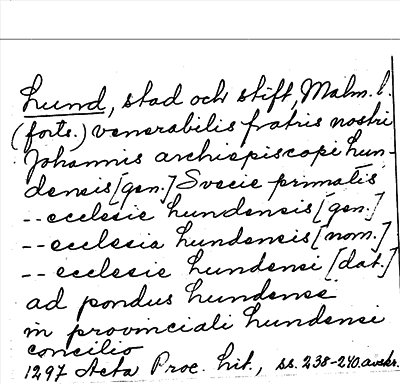 Lund, stad och stift, Malm. l.
(forts.) venerabilis fratris nostri
Johannis archiepiscopi Lun-
densis [gen.] Svecie primatis
-- ecclesie Lundensis [gen.]
-- ecclesia Lundensis [nom.]
-- ecclesie Lundensi [dat.]
ad pondus Lundense
in provinciali Lundensi
concilio
1297 Acta Proc. lit., ss. 238-240. avskr.